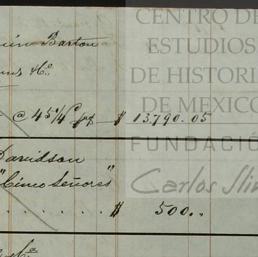 CENTRO DE
ESTUDIOS
DE HISTORIA
DE MEXICO
FUNDACIÓN
Carlos Slim
Barton
@ 45¼ $ 13790.05
Davidson
"Cinco Señores"
$ 500..